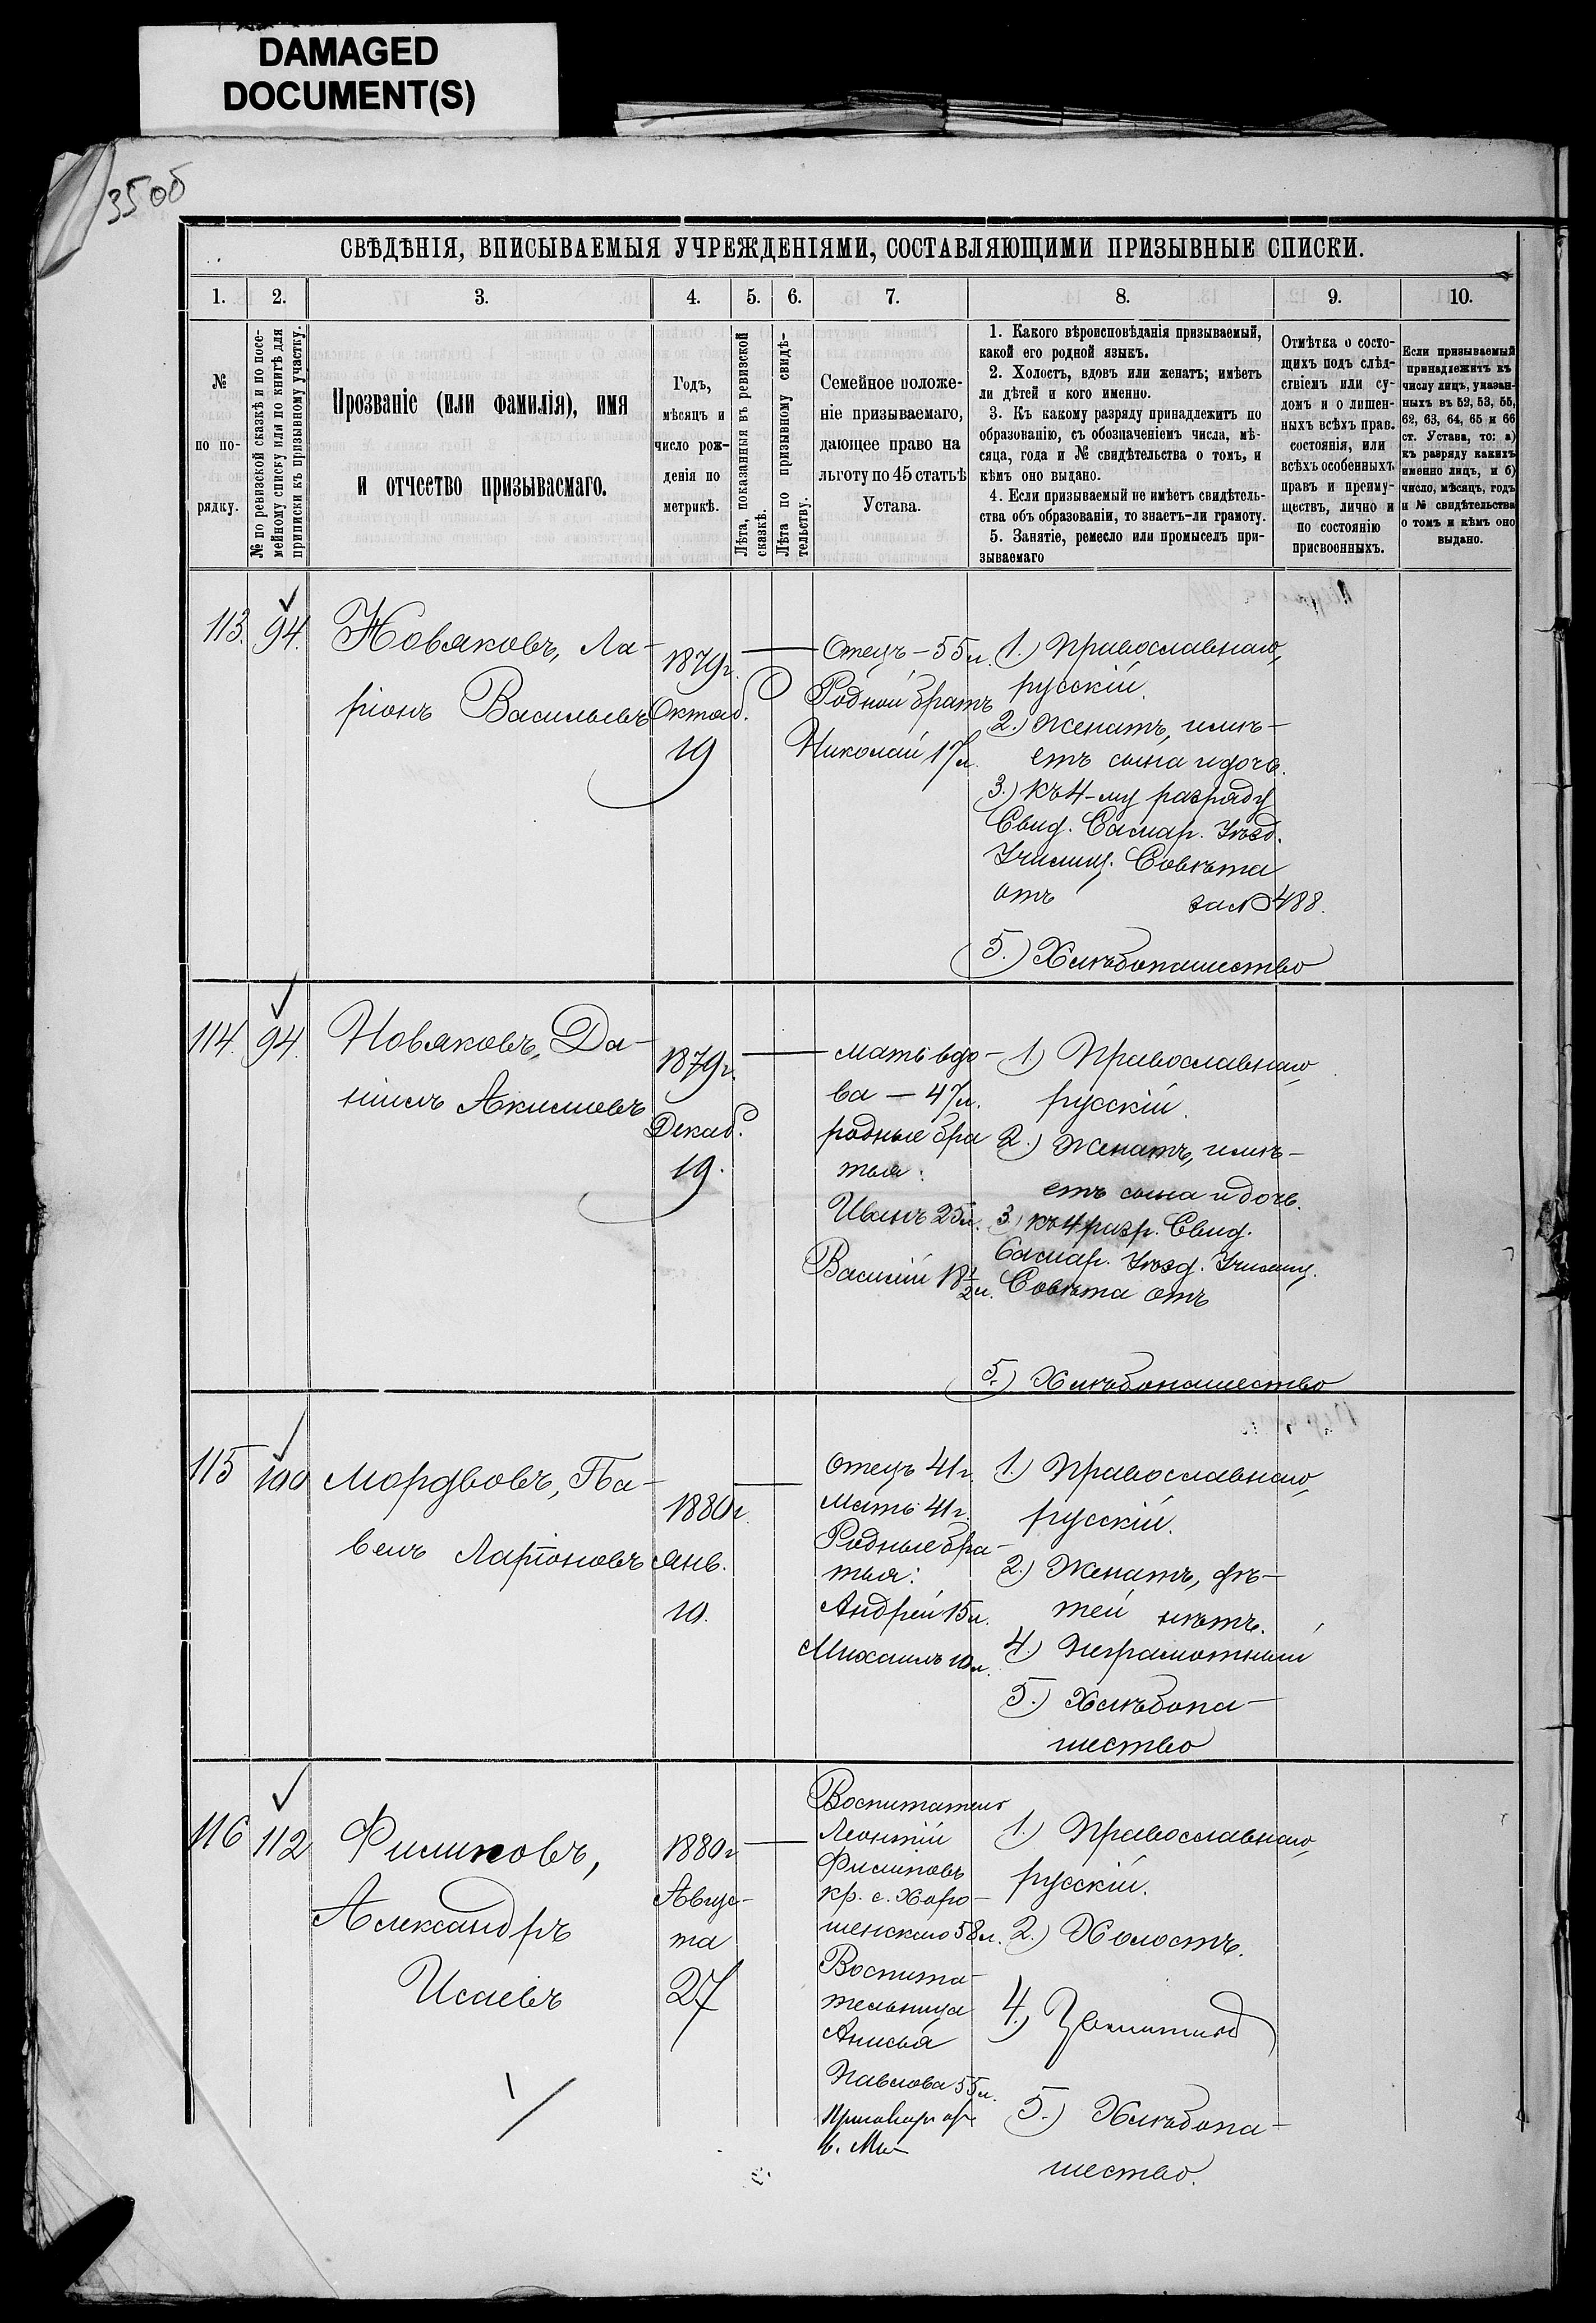 DAMAGED
DOCUMENT(S)
35об
СВѢДѢНІЯ, ВПИСЫВАЕМЫЯ УЧРЕЖДЕНІЯМИ, СОСТАВЛЯЮЩИМИ ПРИЗЫВНЫЕ СПИСКИ.
1. 2. 3. 4. 5. 6. 7. 8. 9. 10.
№
по по-
рядку.
№ по ревизской сказкѣ и по посе-
мейному списку или по книгѣ для
приписки къ призывному участку.
Прозваніе (или фамилія), имя
и отчество призываемаго.
Годъ,
мѣсяцъ и
число рож-
денія по
метрикѣ.
Лѣта, показанныя въ ревизской
сказкѣ.
Лѣта по призывному свидѣ-
тельству.
Семейное положе-
ніе призываемаго,
дающее право на
льготу по 45 статьѣ
Устава.
1. Какого вѣроисповѣданія призываемый,
какой его родной языкъ.
2. Холостъ, вдовъ или женатъ; имѣетъ
ли дѣтей и кого именно.
3. Къ какому разряду принадлежитъ по
образованію, съ обозначеніемъ числа, мѣ-
сяца, года и № свидѣтельства о томъ, и
кѣмъ оно выдано.
4. Если призываемый не имѣетъ свидѣтель-
ства объ образованіи, то знаетъ-ли грамоту.
5. Занятіе, ремесло или промыселъ при-
зываемаго
Отмѣтка о состо-
щихъ подъ слѣд-
ствіемъ или су-
домъ и о лишен-
ныхъ всѣхъ прав.
состоянія, или
всѣхъ особенныхъ
правъ и преиму-
ществъ, лично и
по состоянію
присвоенныхъ.
Если призываемый
принадлежитъ къ
числу лицъ, указан-
ныхъ въ 52, 53, 55,
62, 63, 64, 65 и 66
ст. Устава, то: а)
къ разряду какихъ
именно лицъ, и б)
число, мѣсяцъ, годъ
и № свидѣтельства
о томъ и кѣмъ оно
выдано.
113. 94.
Новяковъ, Ла-
ріонъ Васильевъ
1879г.
Октяб.
19
Отецъ – 55 л.
Родной братъ
Николай 17л.
1.) Православнаго,
русскій.
2.) Женатъ, имѣ-
етъ сына и дочь.
3.) Къ 4-му разряду
Свид. Самар. Уѣзд.
Училищ. Совѣта
отъ за № 488.
5.) Хлѣбопашество
114. 94.
Новяковъ, Да-
ніилъ Акимовъ
1879г.
Декаб.
19.
мать вдо-
ва – 47л.
родные бра
тья:
Иванъ 25л.
Василій 18 1/2 л.
1.) Православнаго,
русскій.
2.) Женатъ, имѣ-
етъ сына и дочь.
3.) къ 4 разр. Свид.
Самар. Уѣзд. Училищ.
Совѣта отъ
5.) Хлѣбопашество
115 100
Мордвовъ, Па-
велъ Ларіоновъ
1880г.
Янв.
10.
Отецъ 41г.
Мать 41г.
Родные бра-
тья:
Андрей 15л.
Михаилъ 10л.
1.) Православнаго,
русскій.
2.) Женатъ, дѣ-
тей нѣтъ.
4.) Неграмотный
5.) Хлѣбопа-
шество
116 112
Филиповъ,
Александръ
Исаевъ
1880г
Авгус-
та
27
Воспитатель
Леонтій
Филиповъ
кр. с. Хоро-
шенскаго 58л.
Воспита-
тельница
Анисья
Павлова 55л.
1.) Православнаго,
русскій.
2.) Холостъ.
4.)
5.) Хлѣбопа-
шество.